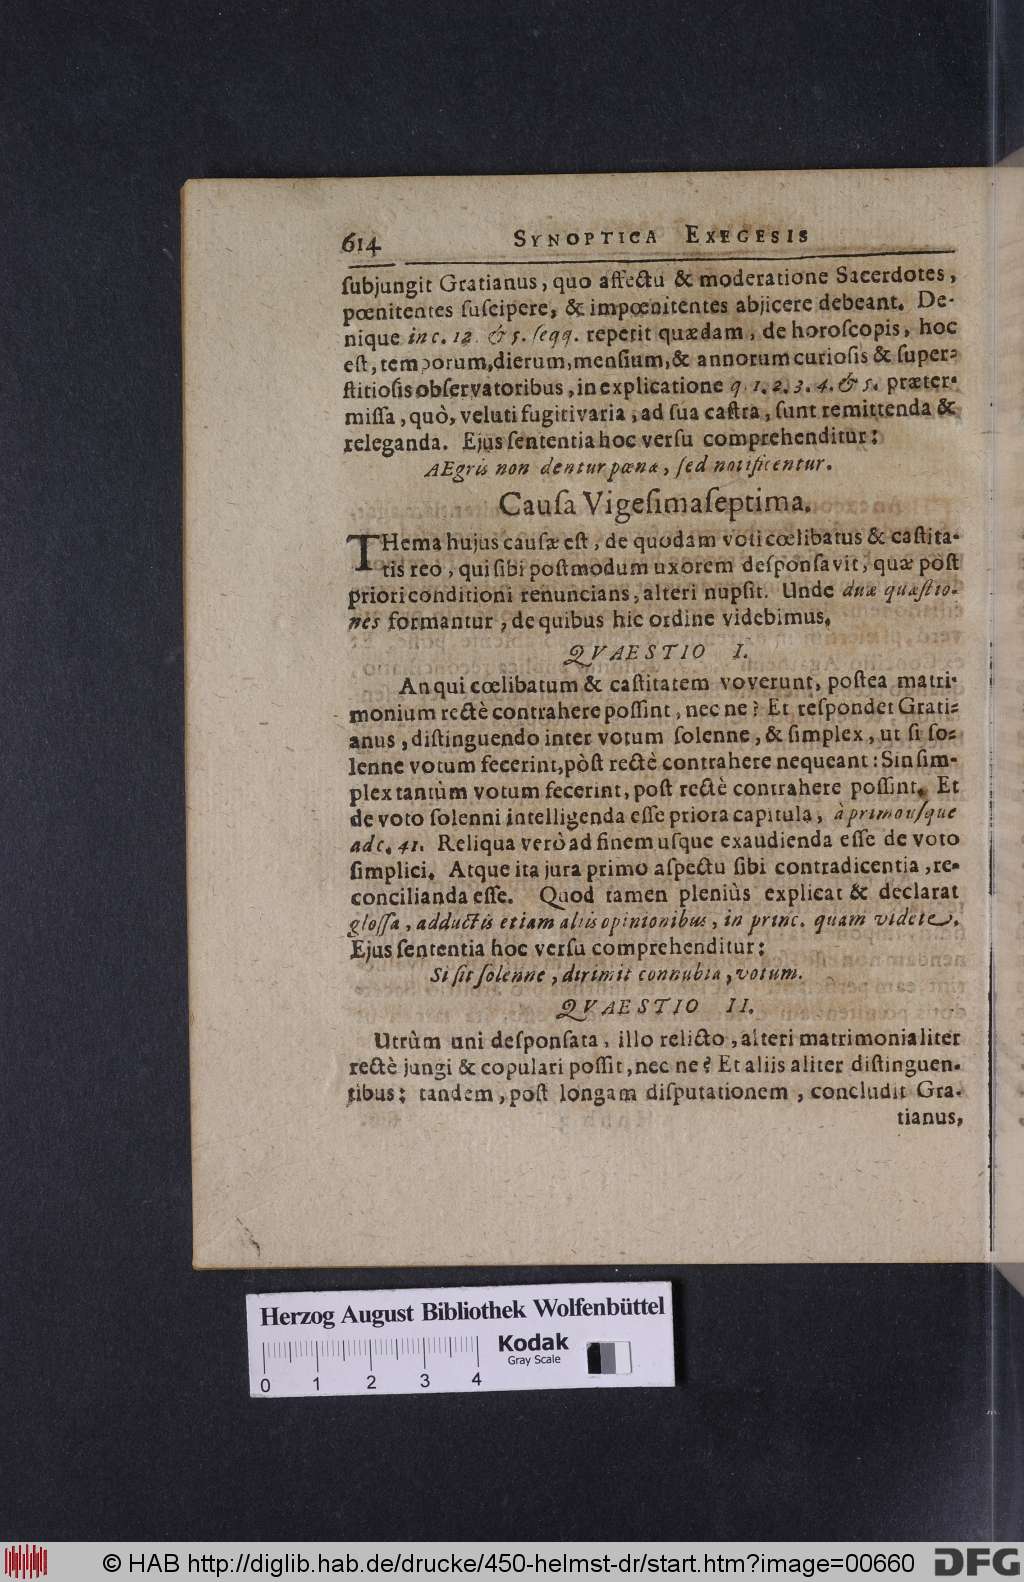 614 SYNOPTICA EXEGESIS
ſubjungit Gratianus, quo affectu & moderatione Sacerdotes,
pœnitentes ſuſcipere, & impœnitentes abjicere debeant. De-
nique in c. 12. & 5. ſeqq. reperit quædam, de horoſcopis, hoc
eſt, temporum, dierum, menſium, & annorum curioſis & ſuper-
ſtitioſis obſervatoribus, in explicatione q. 1. 2. 3. 4. & 5. præter-
miſſa, quò, veluti fugitivaria, ad ſua caſtra, ſunt remittenda &
releganda. Ejus ſententia hoc verſu comprehenditur:
AEgris non dentur pœnæ, ſed notificentur.
Cauſa Vigeſimaſeptima.
THema hujus cauſæ eſt, de quodam voti cœlibatus & caſtita-
tis reo, qui ſibi poſtmodum uxorem deſponſavit, quæ pòſt
priori conditioni renuncians, alteri nupſit. Unde duæ quæſtio-
nes formantur, de quibus hic ordine videbimus.
QVAESTIO I.
An qui cœlibatum & caſtitatem voverunt, poſtea matri-
monium rectè contrahere poſſint, nec ne? Et reſpondet Grati-
anus, diſtinguendo inter votum ſolenne, & ſimplex, ut ſi ſo-
lenne votum fecerint, pòſt rectè contrahere nequeant: Sin ſim-
plex tantùm votum fecerint, poſt rectè contrahere poſſint. Et
de voto ſolenni intelligenda eſſe priora capitula, à primo uſque
ad c. 41. Reliqua verò ad finem uſque exaudienda eſſe de voto
ſimplici. Atque ita jura primo aſpectu ſibi contradicentia, re-
concilianda eſſe. Quod tamen pleniùs explicat & declarat
gloſſa, adductis etiam aliis opinionibus, in princ. quam videte.
Ejus ſententia hoc verſu comprehenditur:
Si ſit ſolenne, dirimit connubia, votum.
QVAESTIO II.
Utrùm uni deſponſata, illo relicto, alteri matrimonialiter
rectè jungi & copulari poſſit, nec ne? Et aliis aliter diſtinguen-
tibus: tandem, poſt longam diſputationem, concludit Gra-
tianus,
Herzog August Bibliothek Wolfenbüttel
Kodak
Gray Scale
0 1 2 3 4
© HAB http://diglib.hab.de/drucke/450-helmst-dr/start.htm?image=00660 DFG